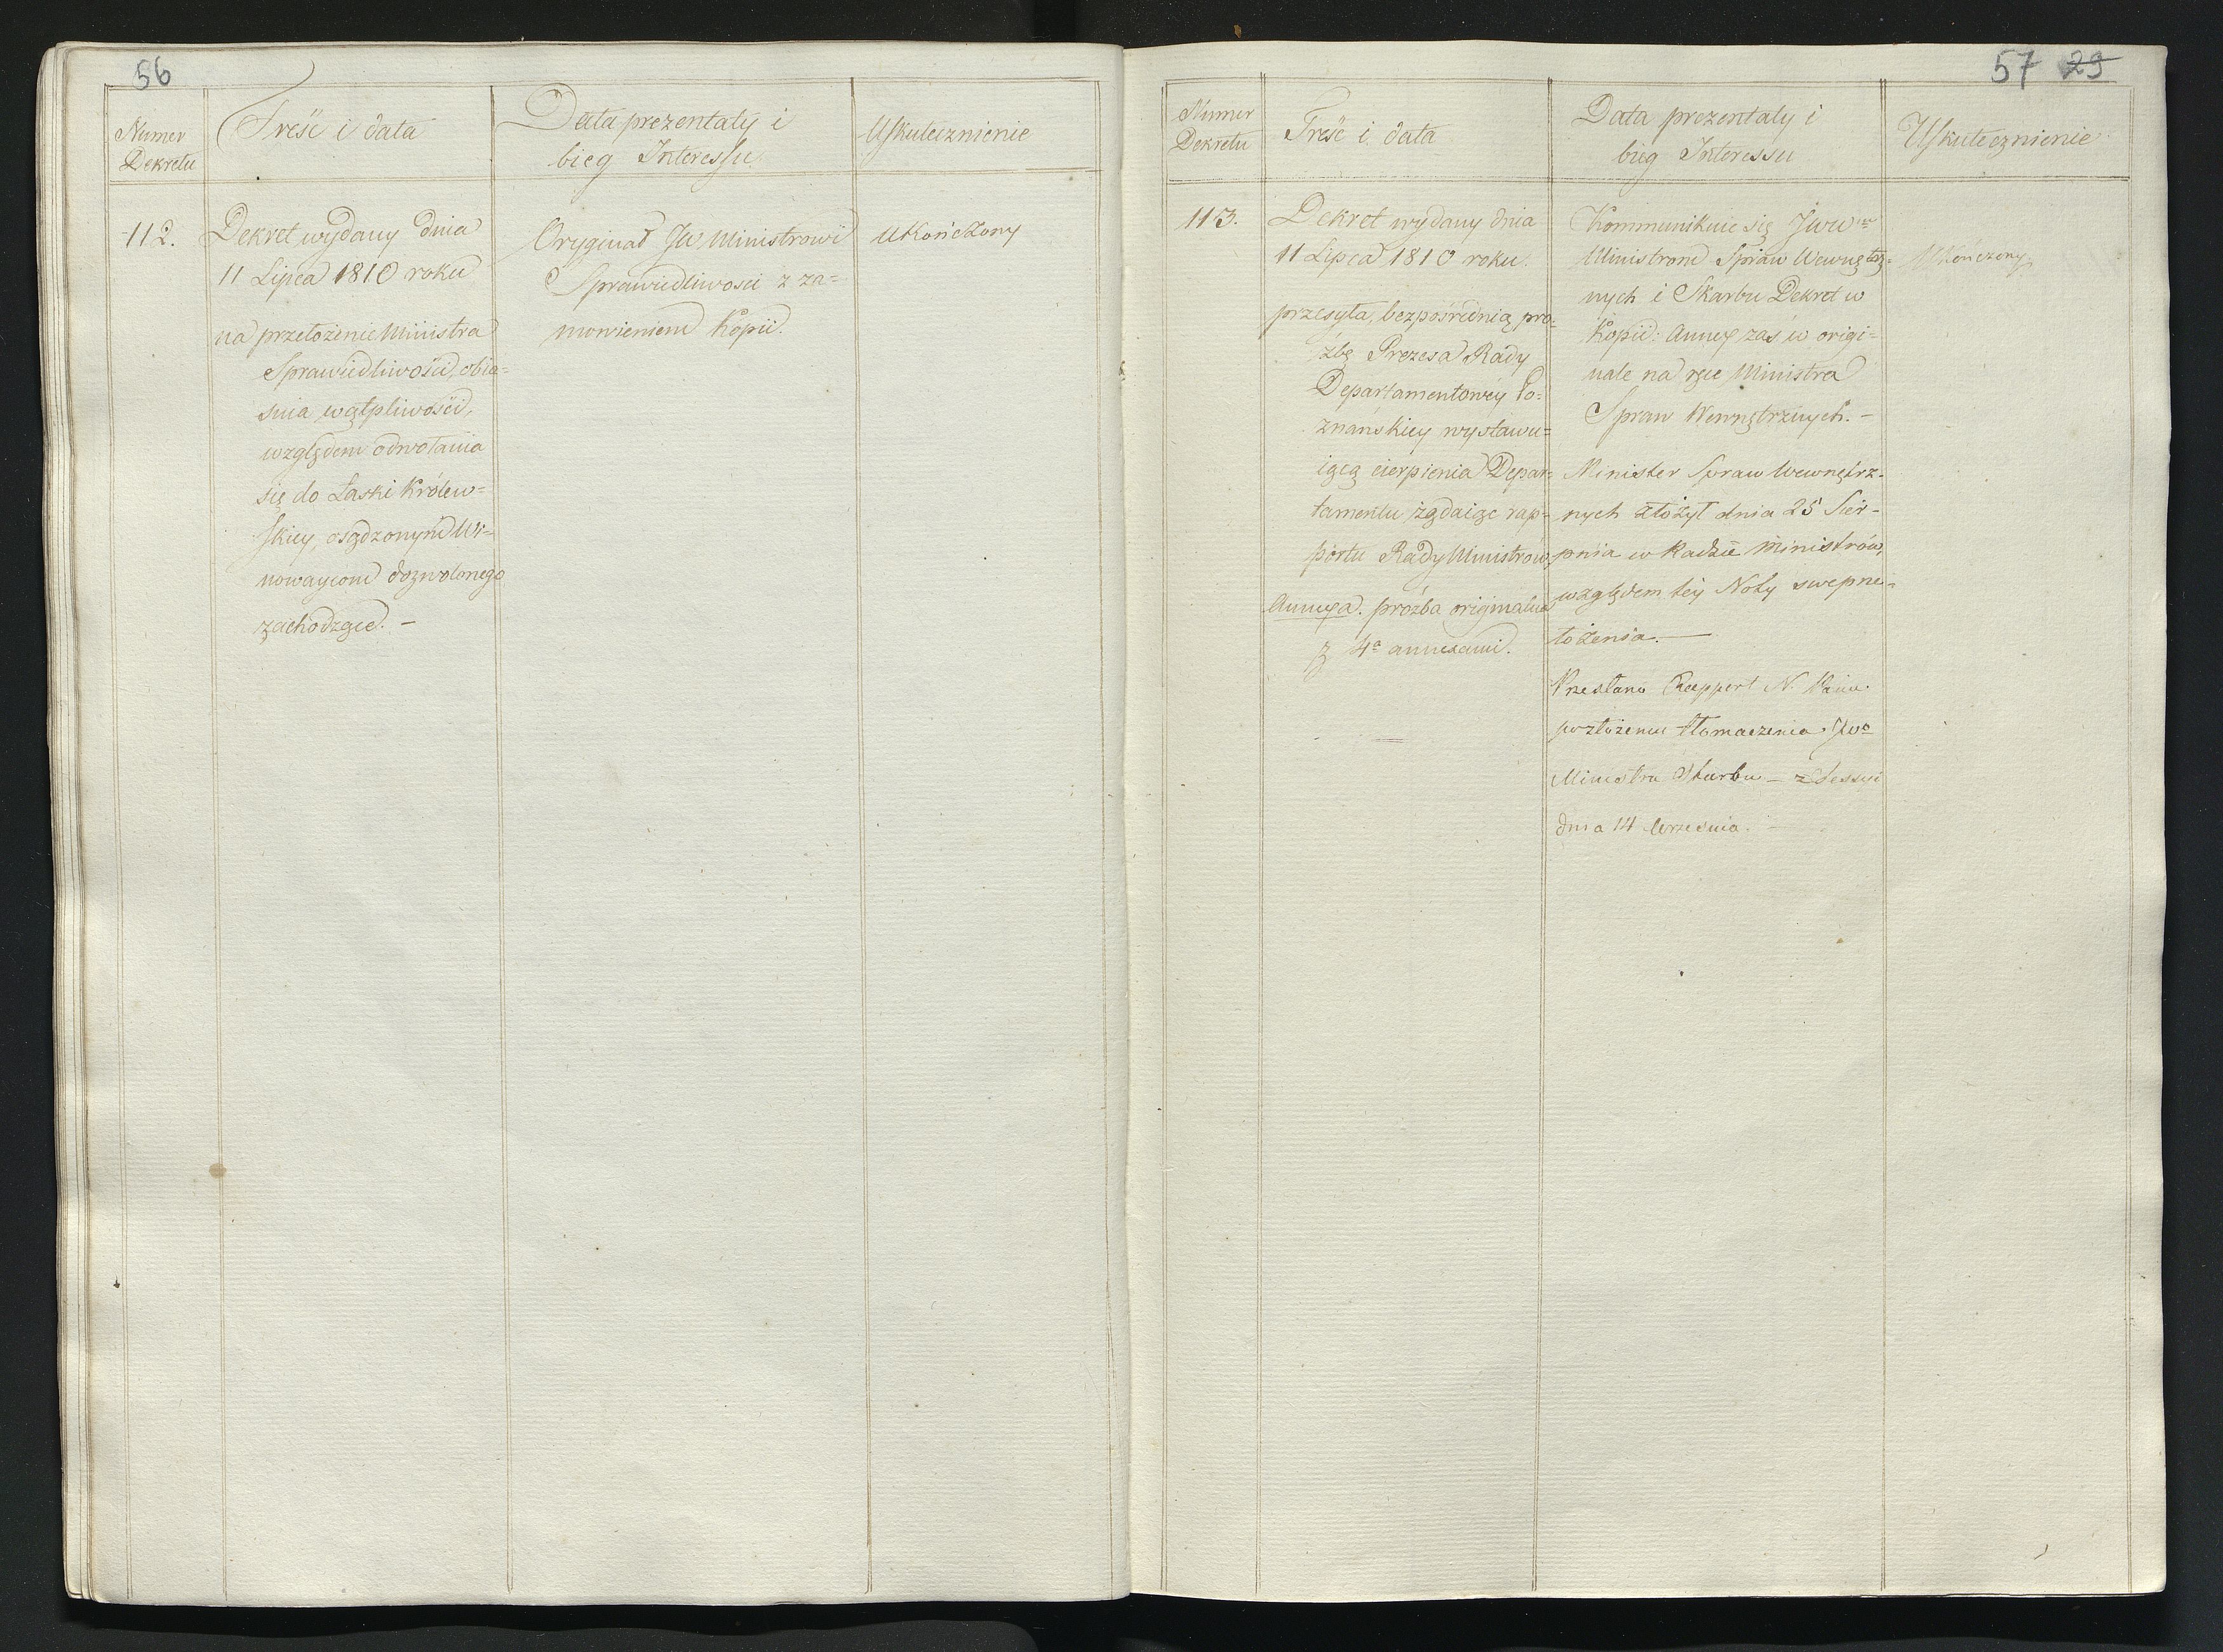 56
Numer
Dekretu
Treść i data
Data prezentaty i
bieg Interessu
Uskutecznienie
112.
Dekret wydany dnia
11 Lipca 1810 roku
na przełożenie Ministra
Sprawiedliwości, obia=
śnia wątpliwości,
względem odwołania
się do Łaski Królew=
skiey, osądzonym Wi=
nowaycom dozwolonego
zachodzące. –
Oryginał JW Ministrowi
Sprawiedliwosci z za=
mowieniem Kopii.
Ukończony
57 29
Numer
Dekretu
Treść i data
Data prezentaty i
bieg Interessu
Uskutecznienie
113.
Dekret wydany dnia
11 Lipca 1810 roku.
przesyła, bezpośrednią pro=
źbę Prezesa Rady
Departamentowey Po=
znańskiey wystawu=
iącą cierpienia Depar=
tamentu żądaiąc rap=
portu Rady Ministrów,
Annexa. prożba originalna
z 4ª annexami.
Kommunikuie się JWW
Ministrom Spraw Wewnętrz=
nych i Skarbu Dekret w
Kopii: Annex zaś w origi=
nale na ręce Ministra
Spraw Wewnętrznych. –
Minister Spraw Wewnętrz-
nych złożył dnia 25 Sier-
pnia w Radzie Ministrów,
względem tey Noty swe prze-
łożenia. —
Przesłano Rapport N. Panu
po złożeniu tłomaczenia JWo
Ministra Skarbu – z Sessyi
dnia 14 Września. –
Ukończony